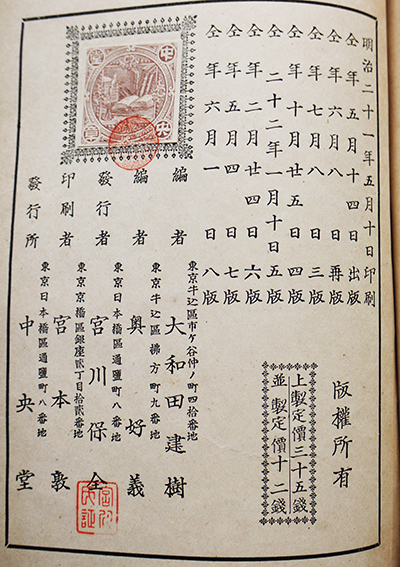 明治二十一年五月十日印刷
仝年五月十四日出版
仝年六月八日再版
仝年七月八日三版
仝年十月廿五日四版
仝二十二年一月十日五版
仝年二月廿四日六版
仝年五月四日七版
仝年六月一日八版
版權所有
上製定價三十五錢
並製定價十二錢
編者
東京牛込區市ケ谷仲ノ町四拾番地
大和田建樹
編者
東京牛込區拂方町九番地
奥好義
發行者
東京日本橋區通鹽町八番地
宮川保全
印刷者
東京京橋區銀座貳丁目拾貳番地
宮本敦
發行所
東京日本橋區通鹽町八番地
中央堂